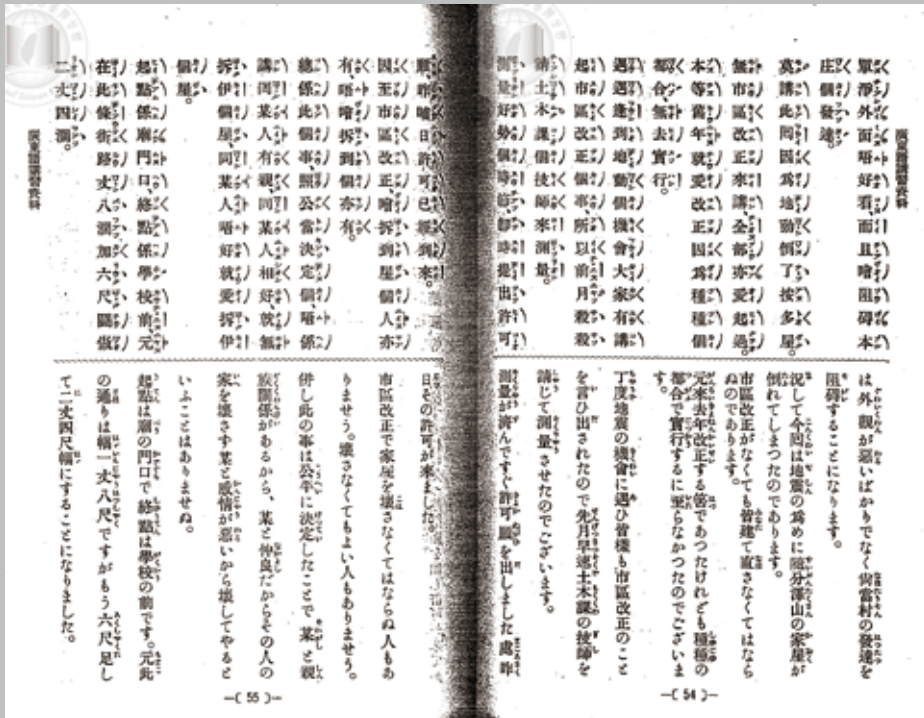 廣東語講習教科
單淨外面唔好看而且噲阻碍本
庄個發達。
莫講此囘因爲地動倒了按多屋。
無市區改正來講、全部亦愛起過。
本等舊年就愛改正因爲種種個
都合、無去實行。
遇遇逢到地動個機會大家有講
起市區改正個事所以前月
請土木課個技師來測量。
測量好勢個時節、即時提出許可
は外觀が惡いばかりでなく尙當村の發達を
阻碍することになります。
況して今囘は地震の爲めに隨分澤山の家屋が
倒れてしまつたのであります。
市區改正がなくても皆建て直さなくてはなら
ぬのであります。
元來去年改正する筈であつたけれども種種の
都合で實行するに至らなかつたのでございま
す。
丁度地震の機會に遇ひ皆樣も市區改正のこと
を言ひ出されたので先月早速土木課の技師を
請じて測量させたのでございます。
測量が濟んですぐ許可願を出しました處昨
—( 54 )—
願、昨噲日許可已經到來。
因至市區改正、噲拆到屋個人亦
有、唔噲拆到個亦有。
總係此個事、照公當決定個、唔係
講因某人有親、同某人相好、就無
拆伊個屋、同某人唔好就愛拆伊
個屋。
起點係廟門口、終點係學校前、元
在此條街路丈八濶加六尺闢做
二丈四濶。
廣東語講習教科
日その許可が來ました。
市區改正で家屋を壞さなくてはならぬ人もあ
りませう。壞さなくてもよい人もありませう。
併し此の事は公平に決定したことで、某と親
族關係があるから、某と仲良だからその人の
家を壞さず某と感情が惡いから壞してやると
いふことはありませぬ。
起點は廟の門口で終點は學校の前です。元此
の通りは幅一丈八尺ですがもう六尺足し
て二丈四尺幅にすることになりました。
—( 55 )—